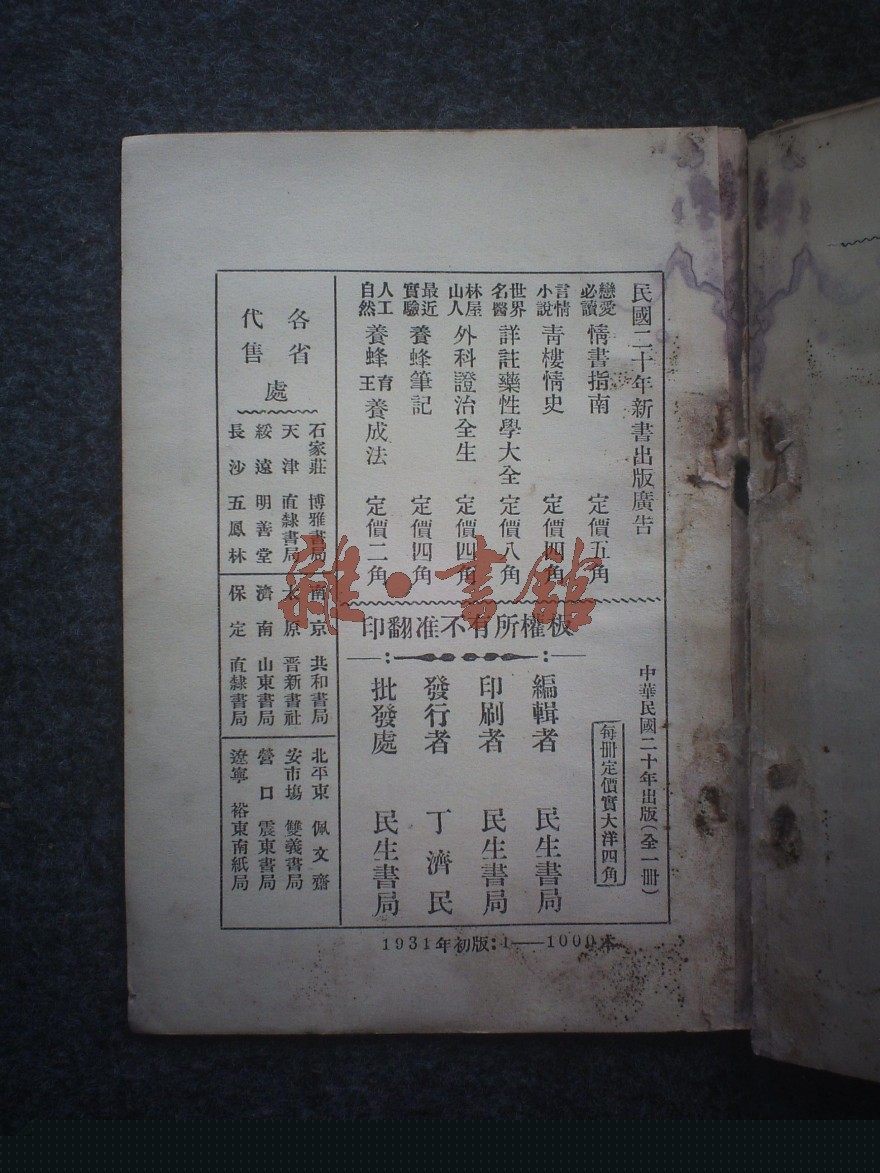 民國二十年新書出版廣告
戀愛必讀 情書指南 定價五角
言情小說 青樓情史 定價四角
世界名醫 詳註藥性學大全 定價八角
林屋山人 外科證治全生 定價四角
最近實驗 養蜂筆記 定價四角
人工自然 養蜂王育養成法 定價二角
印翻准不有所權板
中華民國二十年出版(全一冊)
每冊定價實大洋四角
編輯者 民生書局
印刷者 民生書局
發行者 丁濟民
批發處 民生書局
各省
代售
處
石家莊 博雅書局
天津 直隸書局
綏遠 明善堂
長沙 五鳳林
南京 共和書局
太原 晋新書社
濟南 山東書局
保定 直隸書局
北平東 佩文齋
安市塲 雙義書局
營口 震東書局
遼寧 裕東南紙局
1931年初版:1——1000本
雜·書館